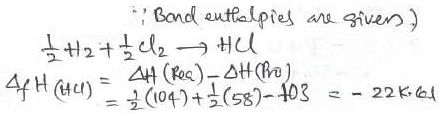 ∵ Bond enthalpies are given)
½H₂ + ½Cl₂ → HCl
ΔfH(HCl) = ΔH(Rea) – ΔH(Pro)
= ½(104) + ½(58) – 103 = – 22 K.Cal